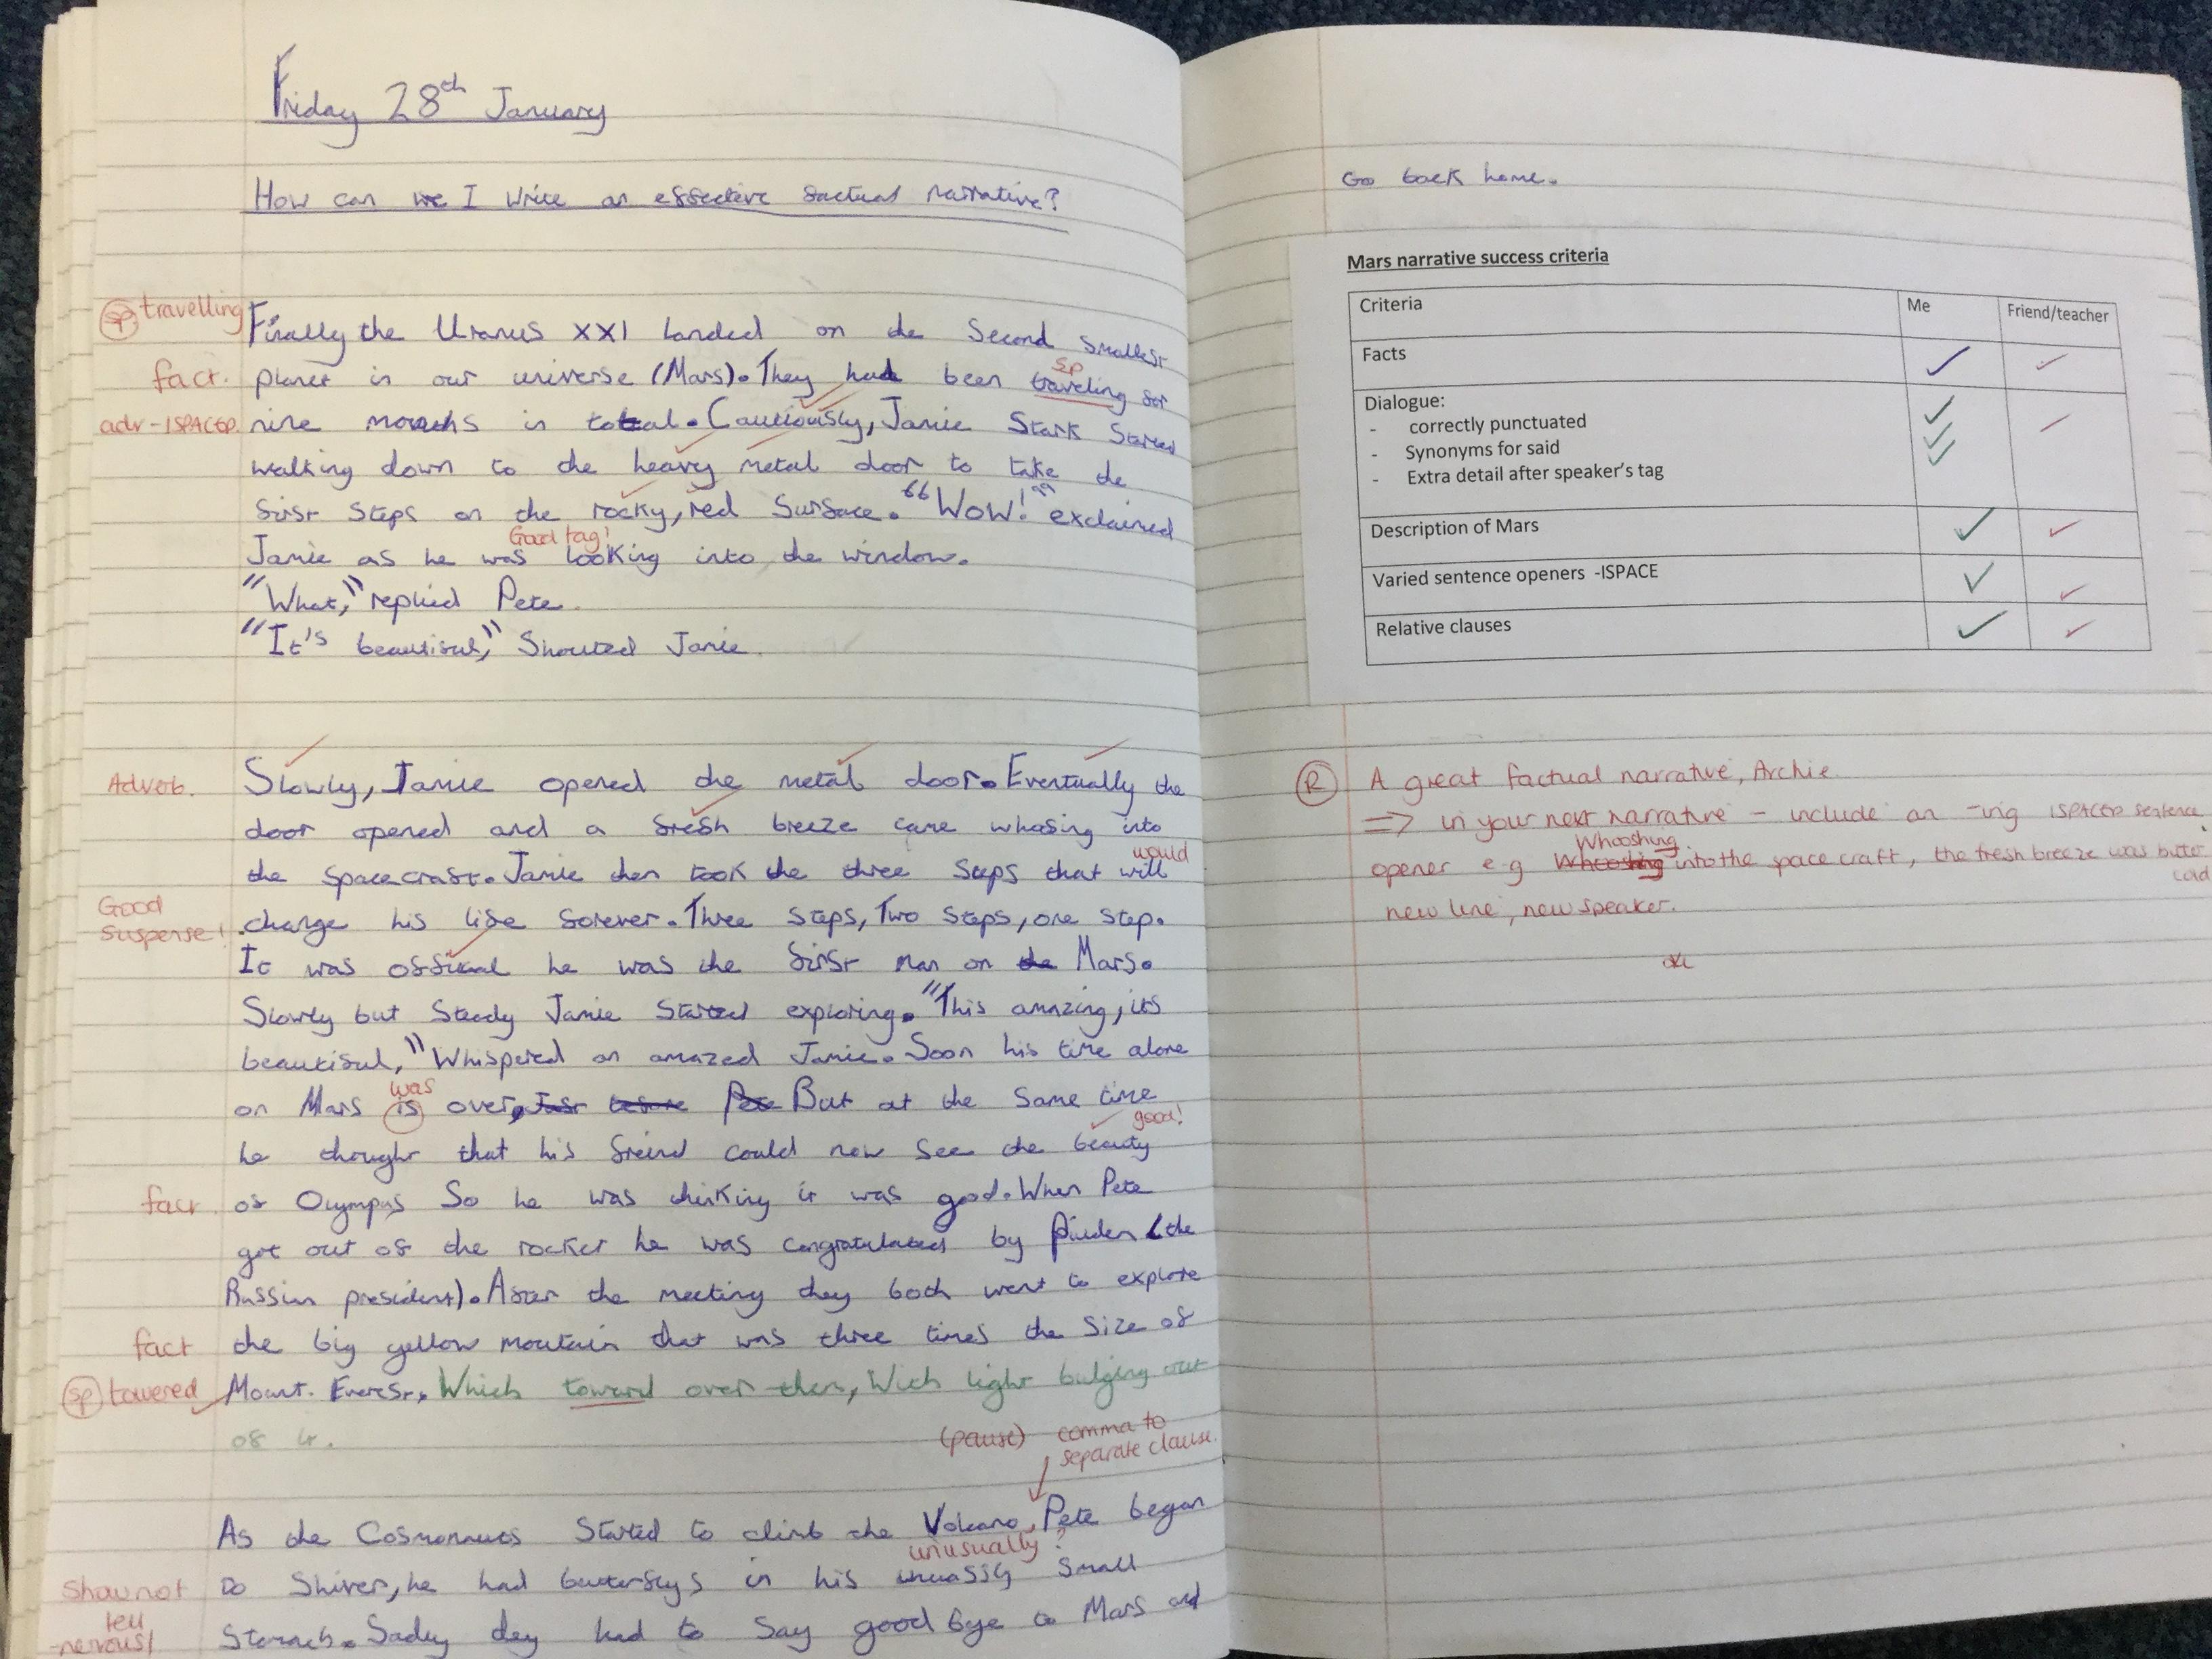 Friday 28th January
How can we I write an effective factual narrative?
sp travelling
Finally the Uranus XXI landed on the second smallest
fact. planet in our universe (Mars). They had been traveling for
sp
adv - ISPACED nine months in total. Cautiously, Jamie Stark started
walking down to the heavy metal door to take the
first steps on the rocky, red surface. "Wow!" exclaimed
Good tag!
Jamie as he was looking into the window.
"What," replied Pete.
"It's beautiful," Shouted Jamie.
Adverb. Slowly, Jamie opened the metal door. Eventually the
door opened and a fresh breeze came whasing into
would
the spacecraft. Jamie then took the three steps that will
Good suspense! change his life forever. Three steps, Two steps, one step.
It was offical he was the first man on the Mars.
Slowly but steady Jamie started exploring. "This amazing, its
beautiful," Whispered an amazed Jamie. Soon his time alone
was
on Mars is over, Just before Pete But at the same time
good!
he thought that his freind could now see the beauty
fact. of Olympus So he was thinking it was good. When Pete
got out of the rocket he was congratulated by Piuden (the
Russian president). After the meeting they both went to explore
fact the big yellow moutain that was three times the size of
sp towered Mount. Everest, Which toward over them, With light bulging out
of it.
(pause) comma to
separate clause.
As the Cosmonauts started to climb the Volcano, Pete began
unusually?
Show not to Shiver, he had butterflys in his small
tell
-nervous! Stomach. Sadly they had to say good bye to Mars and
Go back home.
Mars narrative success criteria
Criteria Me Friend/teacher
Facts
Dialogue:
- correctly punctuated
- Synonyms for said
- Extra detail after speaker's tag
Description of Mars
Varied sentence openers -ISPACE
Relative clauses
R A great factual narrative, Archie.
⇒ in your next narrative - include an -ing ISPACED sentence
Whooshing
opener e.g Whooshing into the space craft, the fresh breeze was bitter
cold
new line, new speaker.